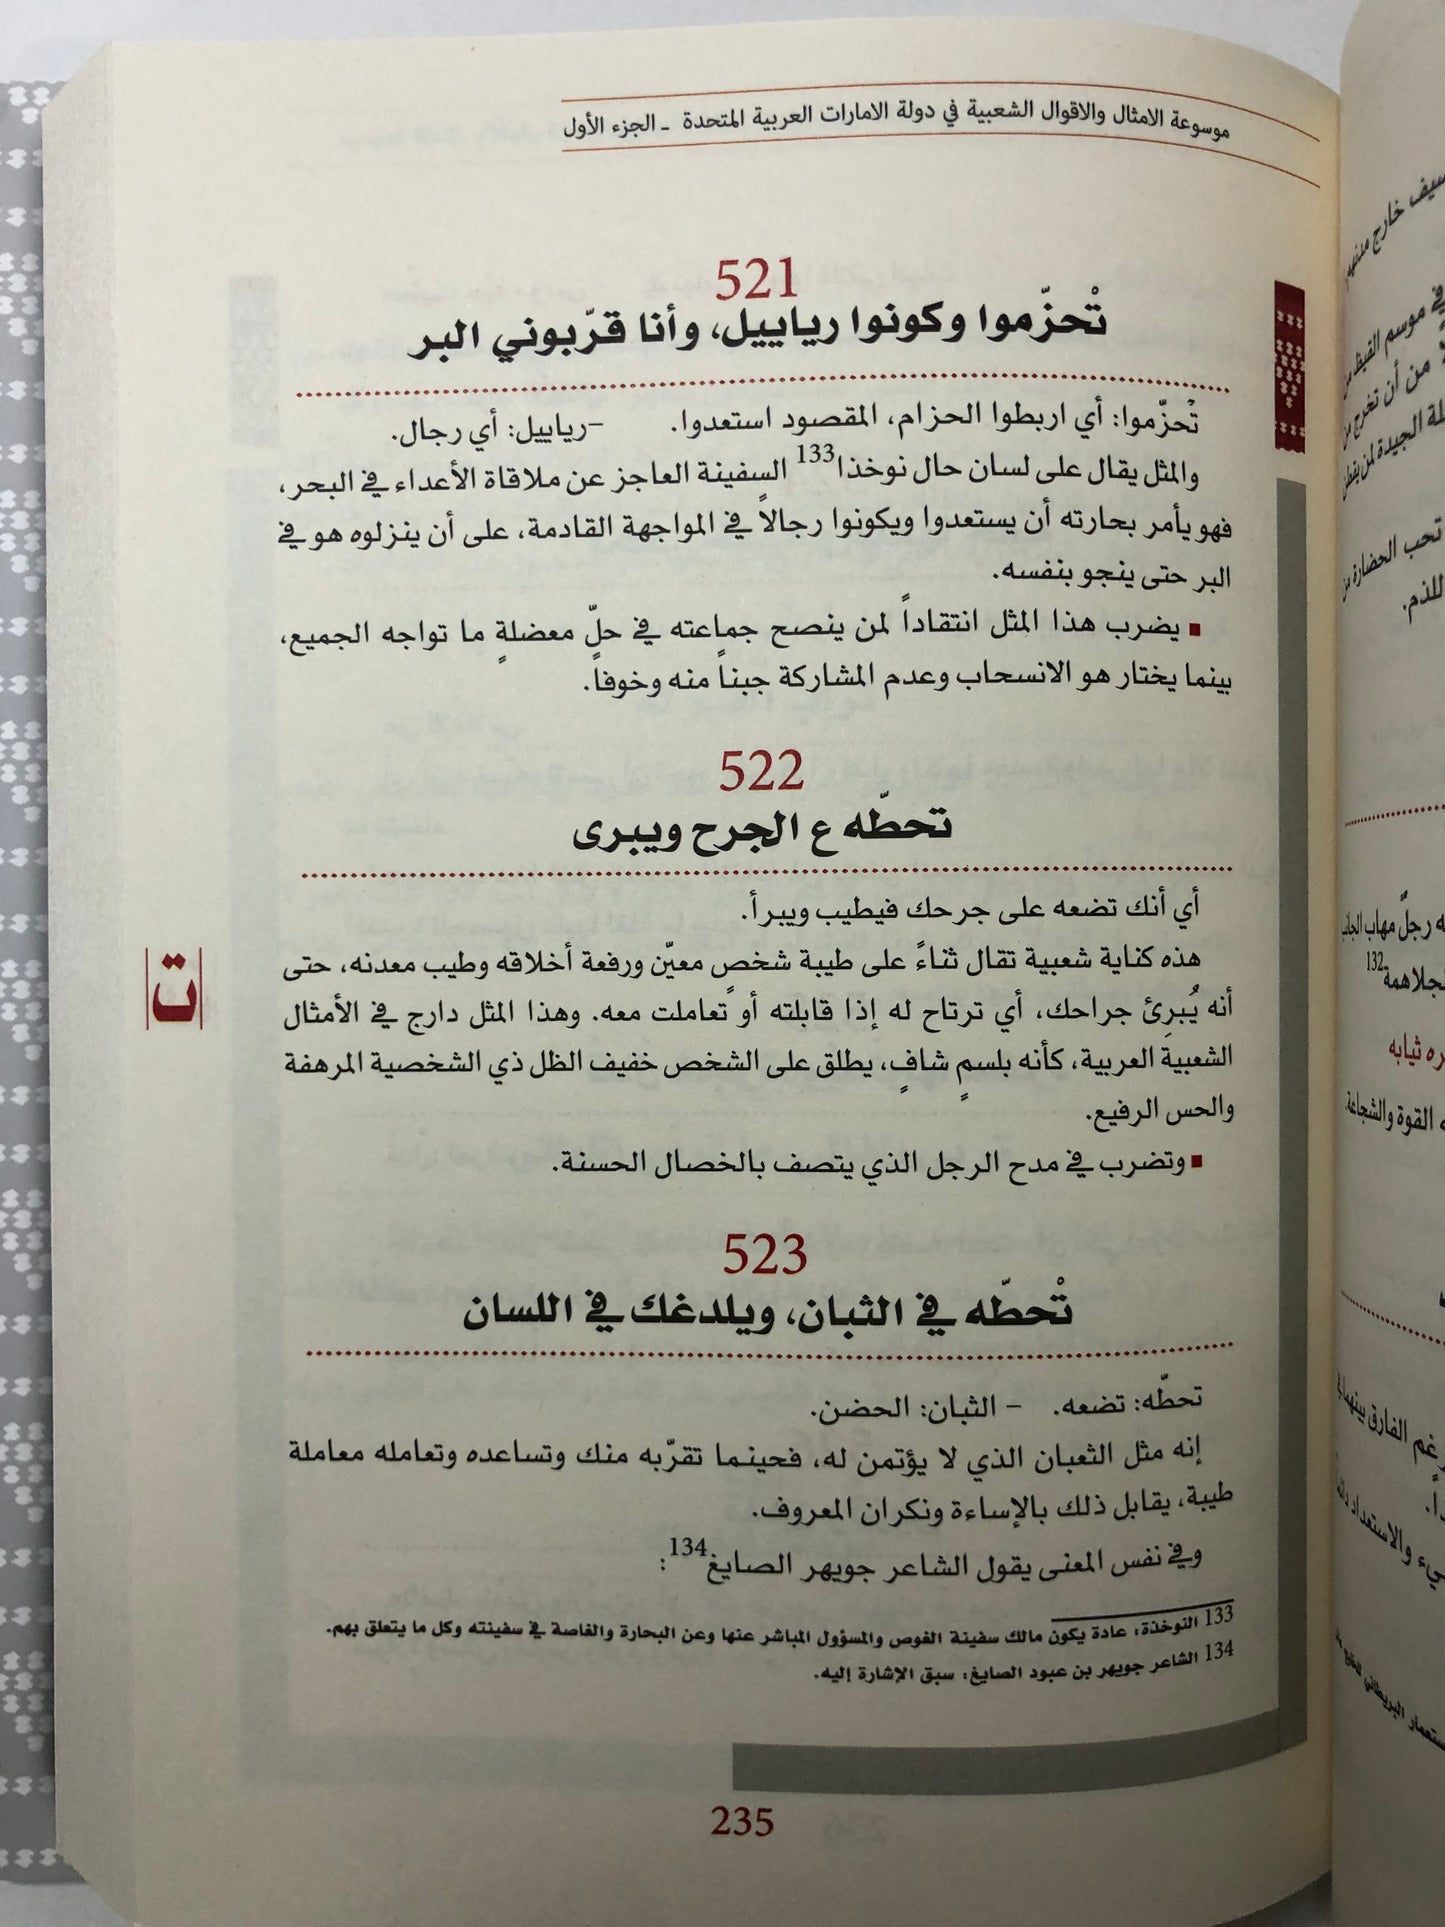 موسوعة الامثال والاقوال الشعبية في دولة الامارات العربية المتحدة - الجزء الأول
521
تْحزّموا وكونوا رياييل، وأنا قرّبوني البر
تْحزّموا: أي اربطوا الحزام، المقصود استعدوا. -رياييل: أي رجال.
والمثل يقال على لسان حال نوخذا133 السفينة العاجز عن ملاقاة الأعداء في البحر،
فهو يأمر بحارته أن يستعدوا ويكونوا رجالاً في المواجهة القادمة، على أن ينزلوه هو في
البر حتى ينجو بنفسه.
■ يضرب هذا المثل انتقاداً لمن ينصح جماعته في حلّ معضلةٍ ما تواجه الجميع،
بينما يختار هو الانسحاب وعدم المشاركة جبناً منه وخوفاً.
522
تحطّه ع الجرح ويبرى
أي أنك تضعه على جرحك فيطيب ويبرأ.
هذه كناية شعبية تقال ثناءً على طيبة شخصٍ معيّن ورفعة أخلاقه وطيب معدنه، حتى
أنه يُبرِئ جراحك، أي ترتاح له إذا قابلته أو تعاملت معه. وهذا المثل دارج في الأمثال
الشعبية العربية، كأنه بلسمٍ شافٍ، يطلق على الشخص خفيف الظل ذي الشخصية المرهفة
والحس الرفيع.
■ وتضرب في مدح الرجل الذي يتصف بالخصال الحسنة.
ت
523
تْحطّه في الثبان، ويلدغك في اللسان
تحطّه: تضعه. - الثبان: الحضن.
إنه مثل الثعبان الذي لا يؤتمن له، فحينما تقرّبه منك وتساعده وتعامله معاملة
طيبة، يقابل ذلك بالإساءة ونكران المعروف.
وفي نفس المعنى يقول الشاعر جويهر الصايغ134:
133 النوخذة: عادة يكون مالك سفينة الغوص والمسؤول المباشر عنها وعن البحارة والغاصة في سفينته وكل ما يتعلق بهم.
134 الشاعر جويهر بن عبود الصايغ: سبق الإشارة إليه.
235
سيف خارج
في موسم القيظ من
من أن تخرج من
لة الجيدة لمن
تحب الحضارة من
للذم.
ه رجلٌ مهاب الجانب
جلاهمة132
ره ثيابه
ه القوة والشجاعة.
رغم الفارق بينهما
يء والاستعداد
ستعمار البريطاني